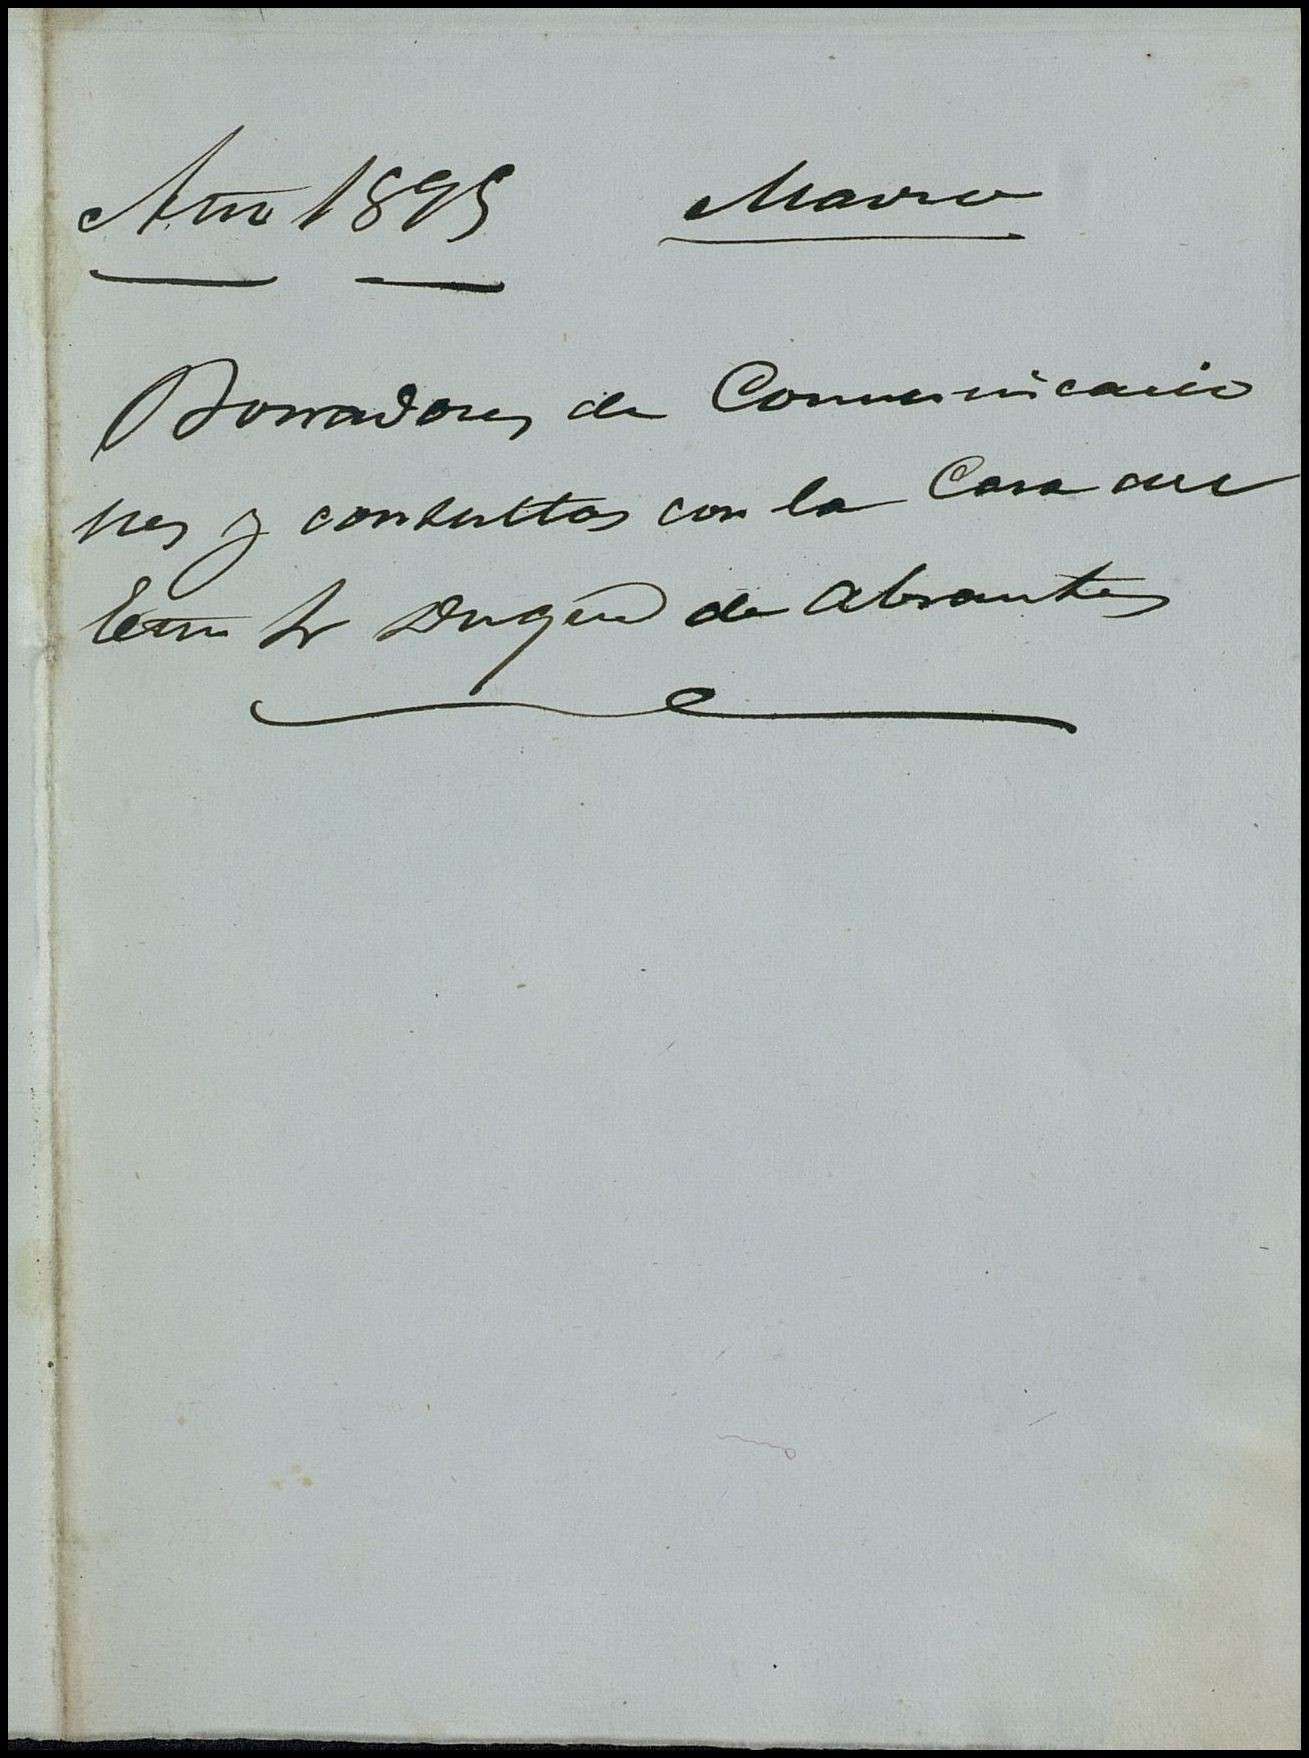 Año 1895 Marzo
Borradores de Comunicacio
nes y consultas con la Casa del
Exmo Sr Duque de Abrantes